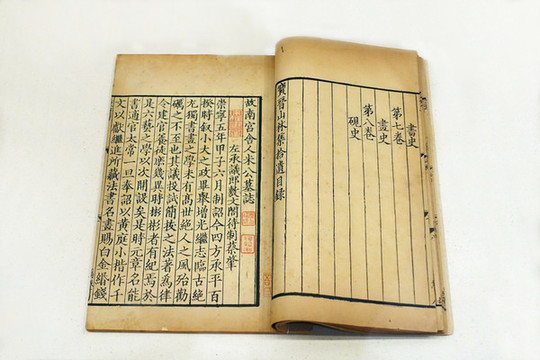 書史
第七卷
畫史
第八卷
硯史
寶晉山林集拾遺目錄
故南宮舍人米公墓誌
左承議郎敷文閣待制蔡肇
崇寧五年甲子六月制詔今四方承平百
揆時敘小大之政畢舉增光繼志臨古絕
尤獨書畫之學未有高世絕人之風殆勸
礪之不至也其議技試簡拔之法著為律
令建官養徒庶幾異時彬彬者有紀焉於
是六藝之學以次開設矣是時元章名能
書通官太常一旦奉詔以黃庭小楷作千
文以獻繼進所藏法書名畫賜白金緡錢